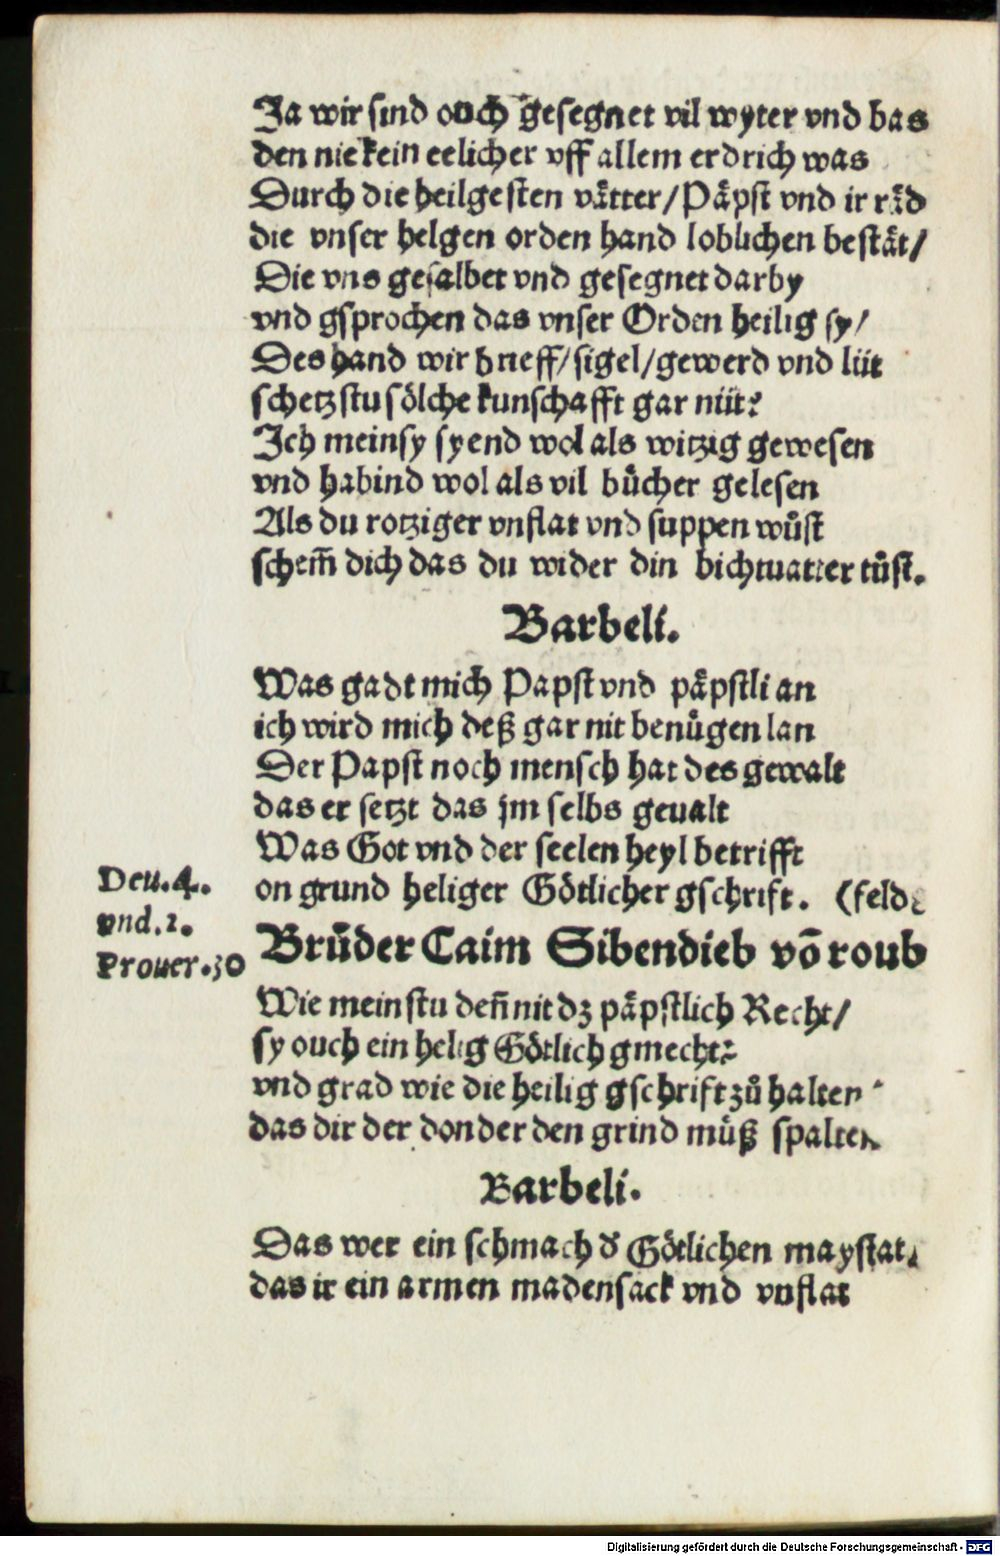 Ja wir sind ouch gesegnet vil wyter vnd bas
den nie kein eelicher vff allem erdrich was
Durch die heilgesten vaͤtter/Paͤpst vnd ir raͤd
die vnser helgen orden hand loblichen bestaͤt/
Die vns gesalbet vnd gesegnet darby
vnd gsprochen das vnser Orden heilig sy/
Des hand wir brieff/sigel/gewerd vnd lüt
schetzstu soͤlche kunschafft gar nüt?
Ich mein sy syend wol als witzig gewesen
vnd habind wol als vil buͤcher gelesen
Als du rotziger vnflat vnd suppen wuͤst
schem̄ dich das du wider din bichtuatter tuͤst.
Barbeli.
Was gadt mich Papst vnd paͤpstli an
ich wird mich deß gar nit benuͤgen lan
Der Papst noch mensch hat des gewalt
das er setzt das jm selbs geualt
Was Got vnd der seelen heyl betrifft
on grund heliger Goͤtlicher gschrift. (feld.
Deu.4.
vnd.2.
Prouer.30
Bruͦder Caim Sibendieb vō roub
Wie meinstu deñ nit dz paͤpstlich Recht/
sy ouch ein helig Goͤtlich gmecht?
vnd grad wie die heilig gschrift zuͦ halten
das dir der donder den grind muͤß spalten
Barbeli.
Das wer ein schmach d' Goͤtlichen maystat.
das ir ein armen madensack vnd vnflat
Digitalisierung gefördert durch die Deutsche Forschungsgemeinschaft - DFG